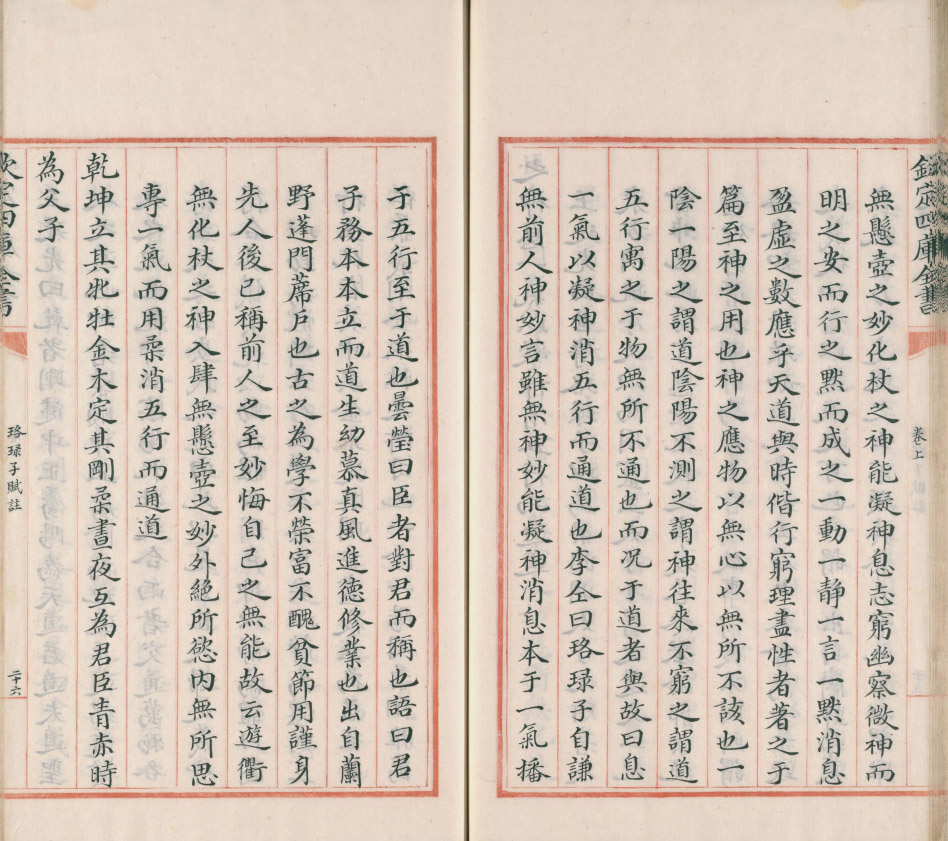 欽定四庫全書
無懸壺之妙化杖之神能凝神息志窮幽察微神而
明之安而行之黙而成之一動一静一言一黙消息
盈虛之數應乎天道與時偕行窮理盡性者著之于
篇至神之用也神之應物以無心以無所不該也一
陰一陽之謂道陰陽不測之謂神往來不窮之謂道
五行寓之于物無所不通也而况于道者與故曰息
一氣以凝神消五行而通道也李仝曰珞琭子自謙
無前人神妙言雖無神妙能凝神消息本于一氣播
卷上
于五行至于道也曇瑩曰臣者對君而稱也語曰君
子務本本立而道生幼慕真風進德修業也出自蘭
野蓬門蓆戸也古之為學不榮富不醜貧節用謹身
先人後己稱前人之至妙悔自己之無能故云遊衢
無化杖之神入肆無懸壺之妙外絶所慾内無所思
専一氣而用柔消五行而通道
乾坤立其牝牡金木定其剛柔晝夜互為君臣青赤時
為父子
欽定四庫全書
珞琭子賦註
二十六